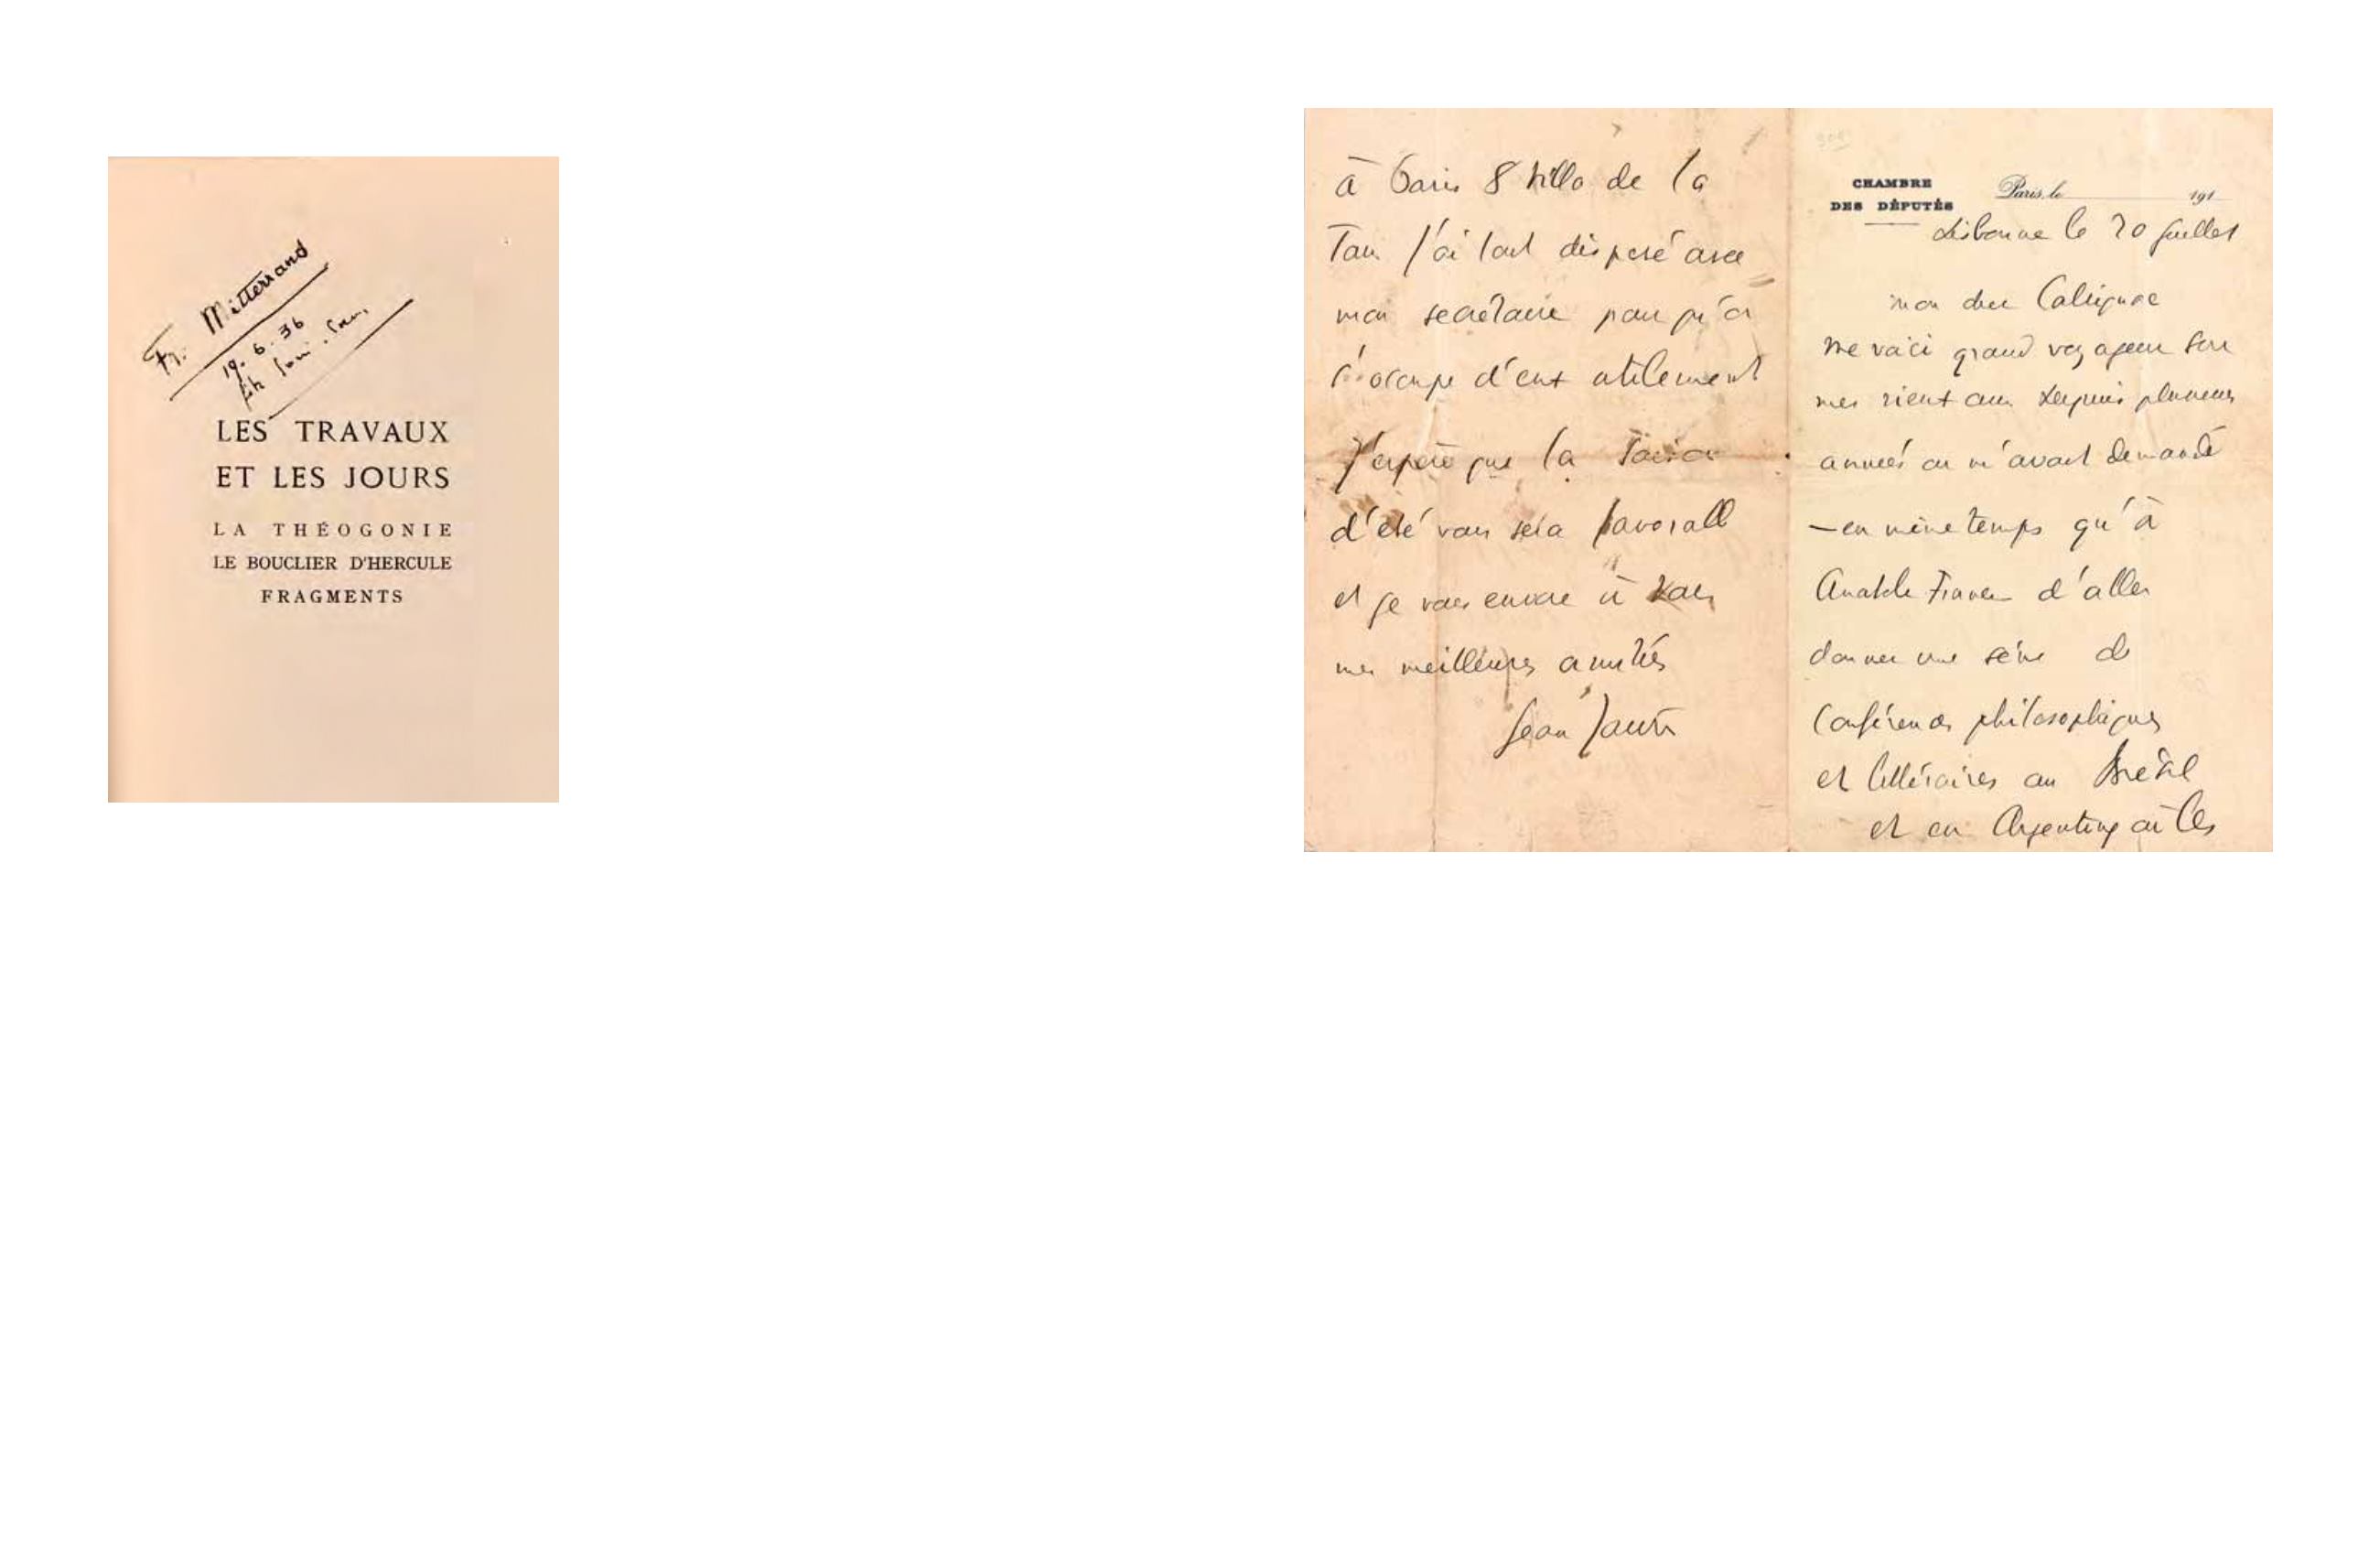 Fr. Mitterrand
19. 6. 36
LES TRAVAUX
ET LES JOURS
LA THÉOGONIE
LE BOUCLIER D'HERCULE
FRAGMENTS
à Paris 8 villa de la
Tour j'ai tout disposé avec
mon secrétaire pour qu'on
s'occupe d'eux utilement
J'espère que la saison
d'été vous sera favorable
et je vous envoie à tous
mes meilleures amitiés
Jean Jaurès
CHAMBRE
DES DÉPUTÉS
Paris, le 191
Lisbonne le 20 juillet
mon cher Calvignac
me voici grand voyageur sur
mes vieux ans depuis plusieurs
années on m'avait demandé
— en même temps qu'à
Anatole France d'aller
donner une série de
conférences philosophiques
et littéraires au Brésil
et en Argentine où les